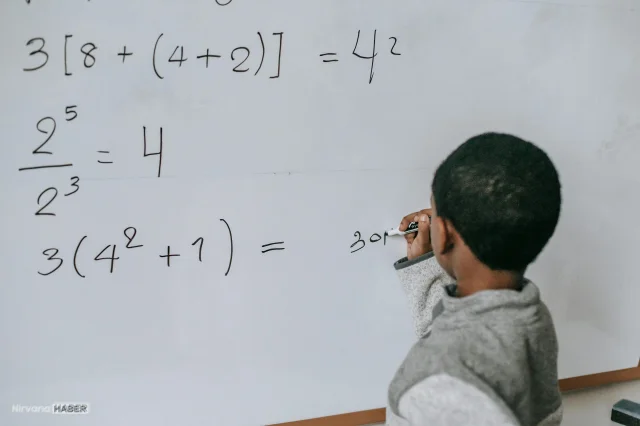 3[8 + (4 + 2)] = 42
2⁵/2³ = 4
3(4² + 1) = 30
Nirvana HABER